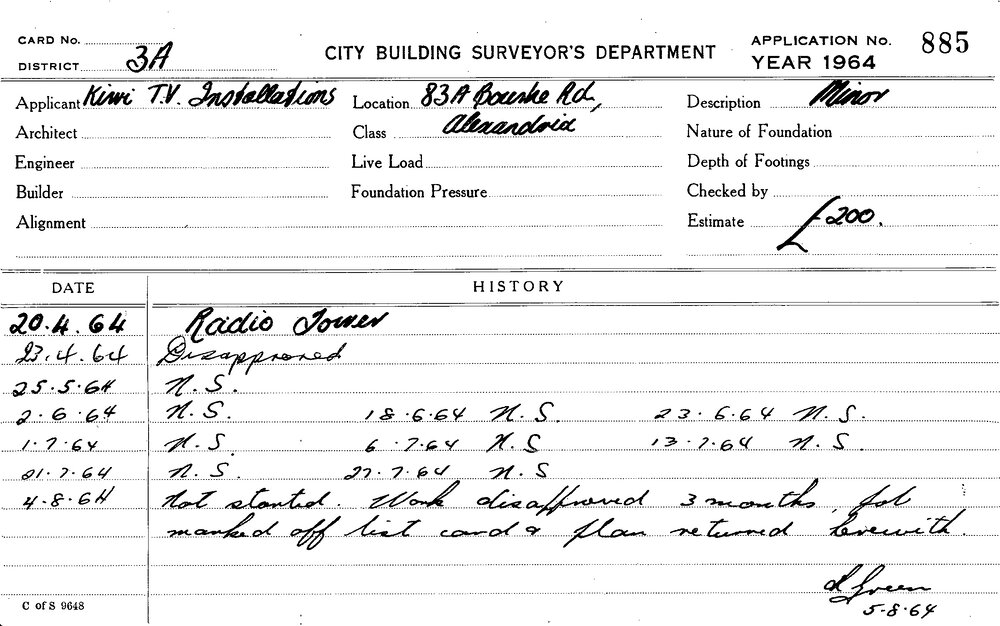 CARD No.
DISTRICT 3A
CITY BUILDING SURVEYOR'S DEPARTMENT
APPLICATION No. 885
YEAR 1964
Applicant Kiwi T.V. Installations
Location 83A Bourke Rd,
Description Minor
Architect
Class Alexandria
Nature of Foundation
Engineer
Live Load
Depth of Footings
Builder
Foundation Pressure
Checked by
Alignment
Estimate £200.
DATE HISTORY
20.4.64 Radio Tower
23.4.64 Disapproved
25.5.64 N.S.
2.6.64 N.S. 18.6.64 N.S. 23.6.64 N.S.
1.7.64 N.S. 6.7.64 N.S 13.7.64 N.S.
21.7.64 N.S. 27.7.64 N.S
4.8.64 Not started. Work disapproved 3 months, job
marked off list card & plan returned herewith.
Green
5.8.64
C of S 9648